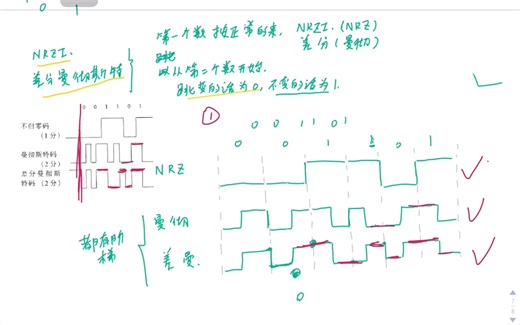 0 1
第一个数按正常的来, NRZI.(NRZ)
差分(曼彻)
NRZI.
差分曼彻斯特
跳
从第二个数开始.
跳变的话为0,不变的话为1.
①
0 0 1 1 0 1
0 0 1 1 0 1
不归零码
(1分)
曼彻斯特码
(2分)
差分曼彻斯
特码 (2分)
0 0 1 1 0 1
NRZ
都有阶
梯
曼彻
差曼.
0